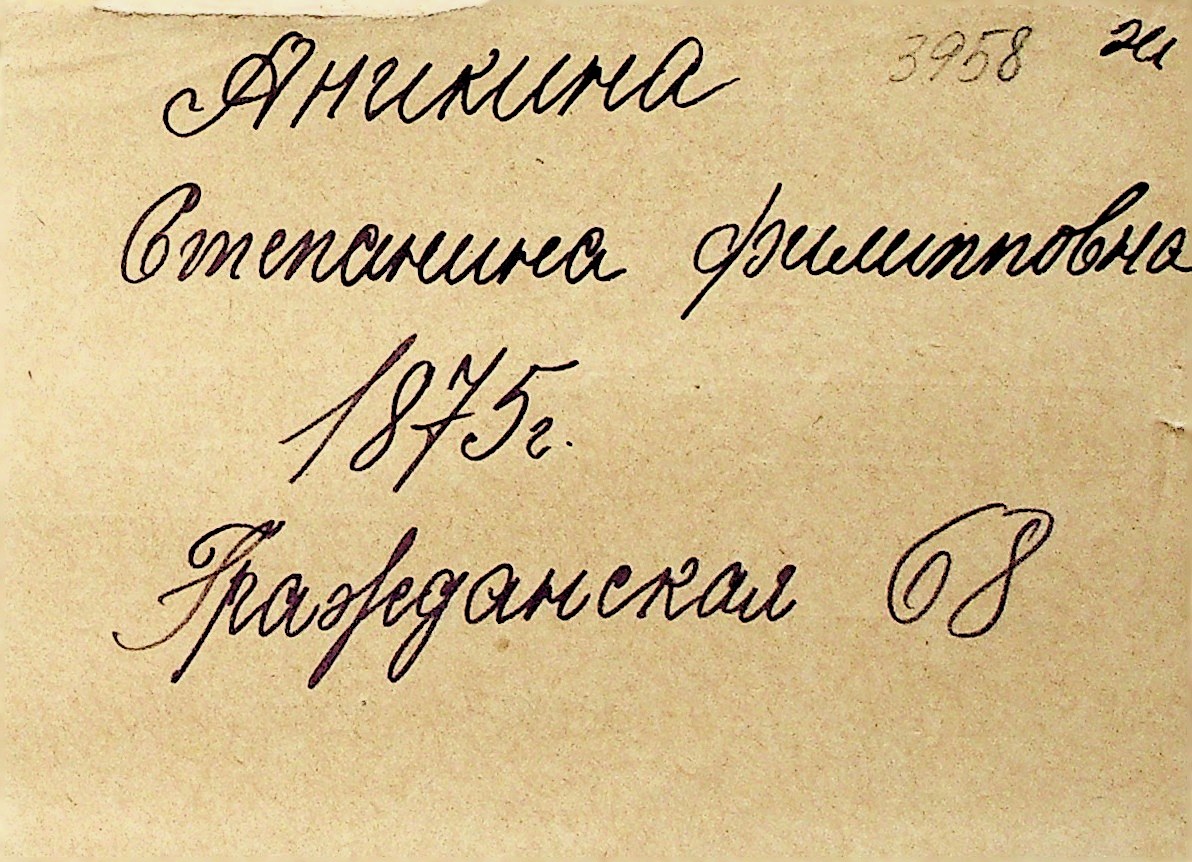 Аникина 3958
Степанина Филипповна
1875г.
Гражданская 68